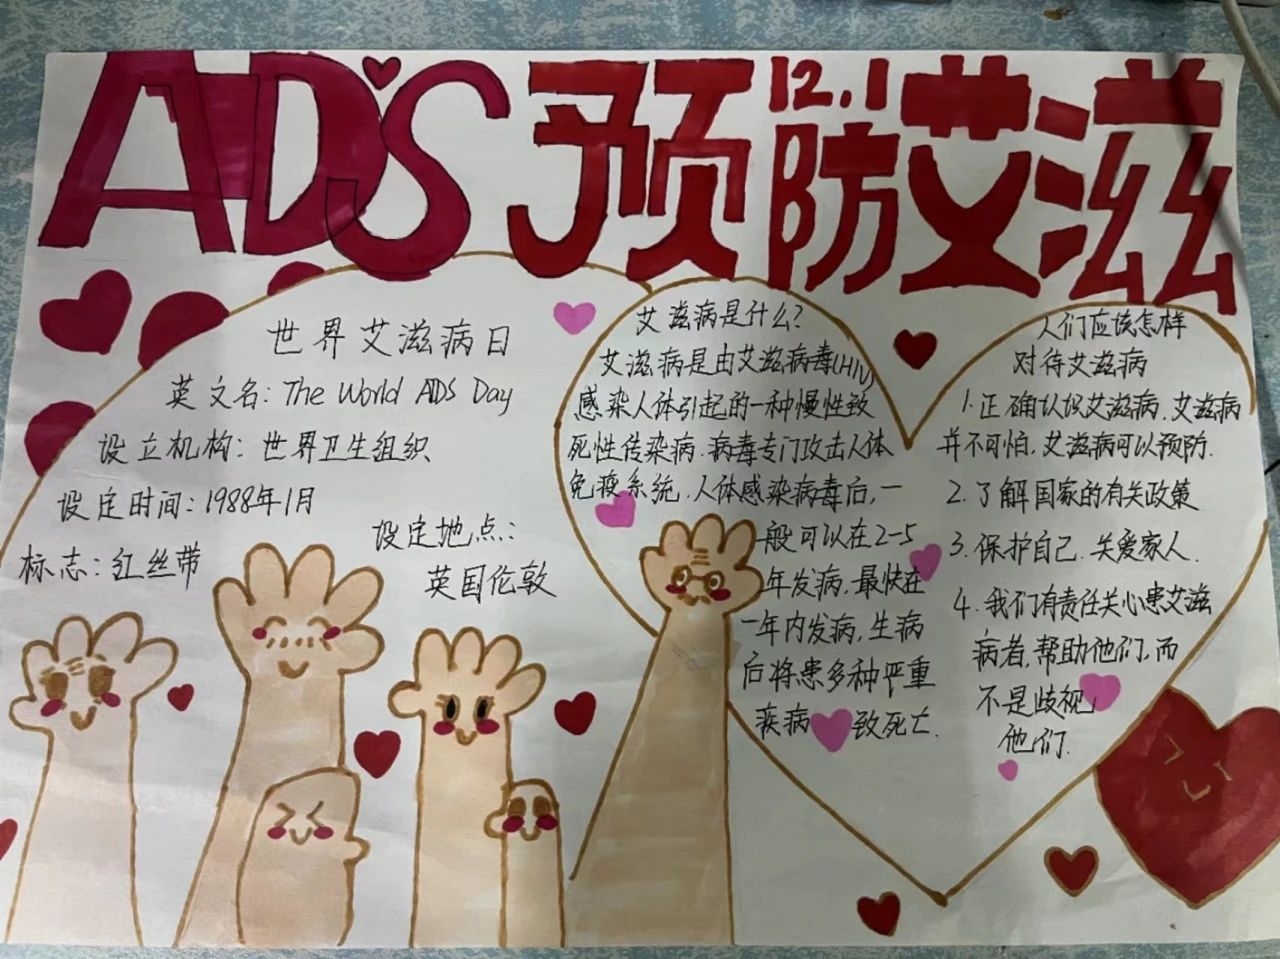 ADS 预防艾滋
12.1
世界艾滋病日
英文名：The World ADS Day
设立机构：世界卫生组织
设定时间：1988年1月
标志：红丝带
设定地点：
英国伦敦
艾滋病是什么？
艾滋病是由艾滋病毒(HIV)
感染人体引起的一种慢性致
死性传染病.病毒专门攻击人体
免疫系统.人体感染病毒后,一
般可以在2-5
年发病,最快在
一年内发病,生病
后将患多种严重
疾病 致死亡.
人们应该怎样
对待艾滋病
1.正确认识艾滋病.艾滋病
并不可怕,艾滋病可以预防.
2.了解国家的有关政策
3.保护自己.关爱家人.
4.我们有责任关心患艾滋
病者,帮助他们,而
不是歧视
他们.